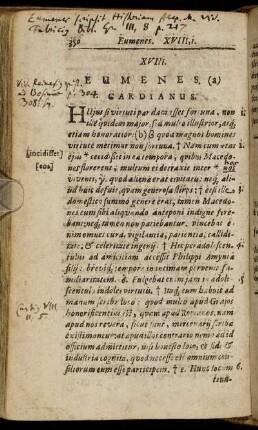 Eumenes scripsit Histor
III, 8 p. 217
350 Eumenes. XVIII, i.
XVIII.
EUMENES, (a)
CARDIANUS.
HUjus si virtuti par data esset fortuna, non
ille quidem major, sed multo illustrior, atq;
etiam honoratior: (b) quod magnos homines
virtute metimur, non fortuna. † Nam cum ætas
ejus cecidisset in ea tempora, quibus Macedo-
nes florerent, multum ei detraxit inter
vivens, quod alienæ erat civitatis: neq; ali-
ud huic defuit, quam generosa stirps: etsi ille
domestico summo genere erat, tamen Macedo-
nes eum sibi aliquando anteponi indigne fere-
bant; neq; tamen non patiebantur. vincebat e-
nim omnes cura, vigilantia, patientia, callidi-
tate, & celeritate ingenij. † Hic peradolescen-
tulus ad amicitiam accessit Philippi Amyntæ
filij: brevíq; tempore in intimam pervenit fa-
miliaritatem. Fulgebat enim jam in adole-
scentulo indoles virtutis. † Itaq; eum habuit ad
manum scribæ loco: quod multo apud Grajos
honorificentius est, quam apud Romanos. nam
apud nos revera, sicut sunt, mercenarij scribæ
existimantur: at apud illos contrario nemo ad id
officium admittitur, nisi honesto loco, & fide &
industria cognita, quod necesse est omnium con-
siliorum eum esse participem. † Hunc locum
tenu-
[incidisset]
[eos]
hos
308.